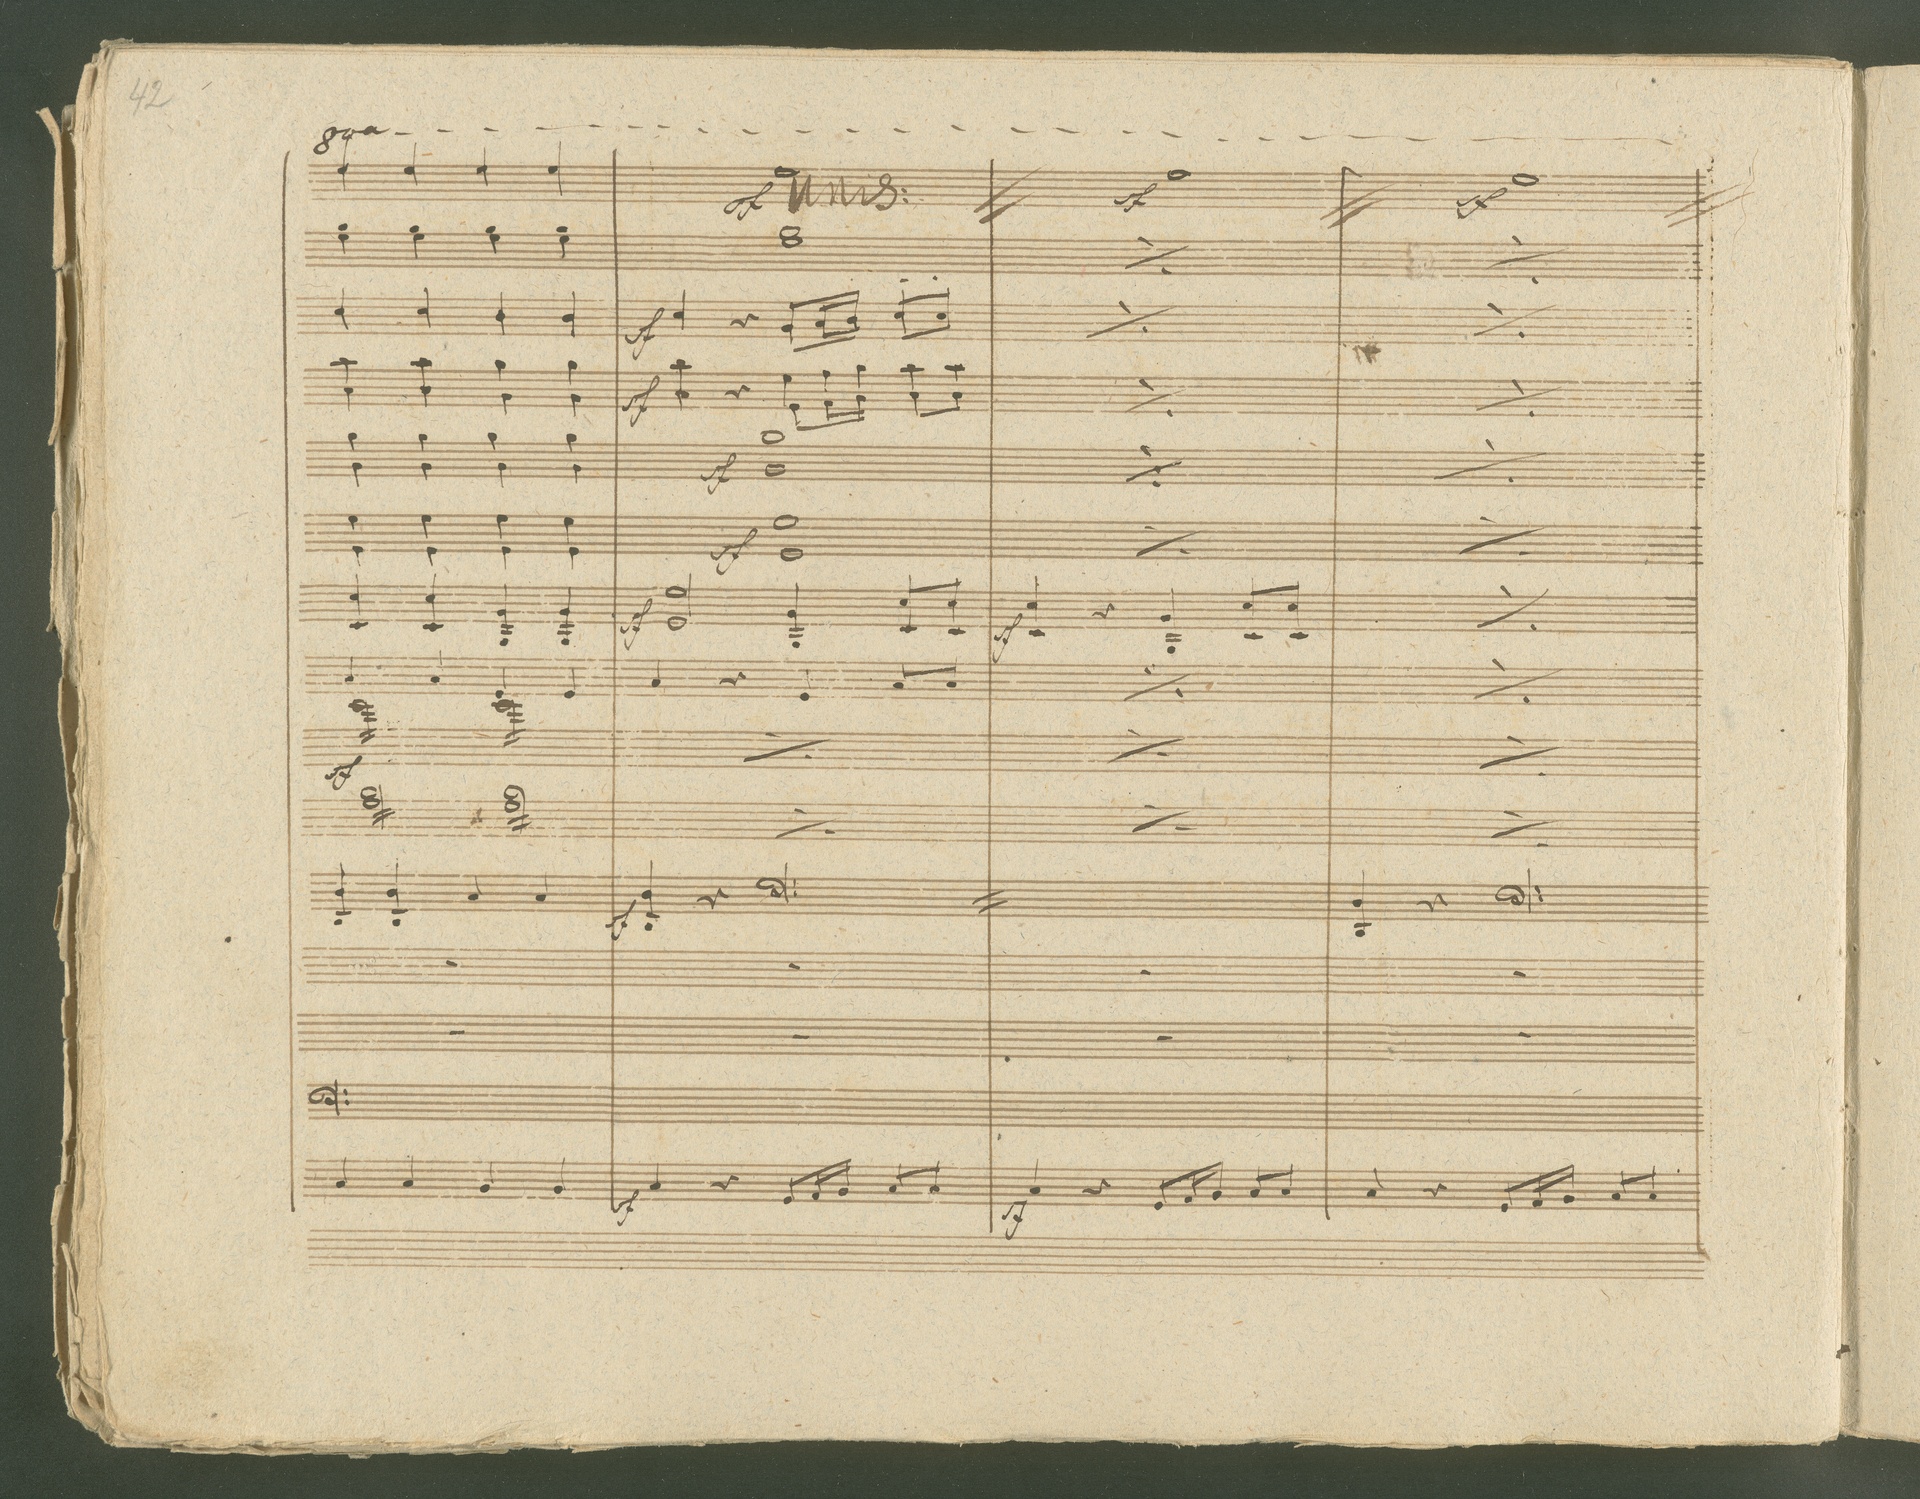 42
8va
sf unis: sf sf
sf
sf
sf
sf
sf sf
sf
sf
sf sf